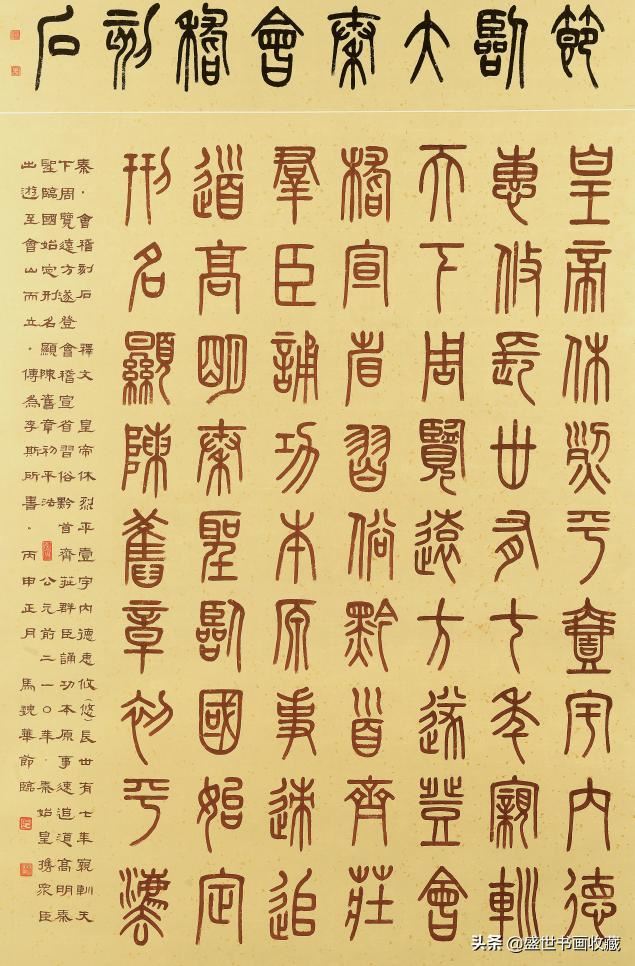 節臨大秦會稽刻石
皇帝休烈平壹宇内德
惠攸長世有七年親
天下周覽遠方遂登會
稽宣省習俗黔首齊莊
羣臣誦功本原事速追
道高明秦聖臨國始定
刑名顯陳舊章初平灋
秦·會稽刻石 釋文 皇帝休烈平壹宇内德惠攸(悠)長世有七年親天
下周覽遠方遂登會稽宣省習俗黔首齊莊群臣誦功本原事速追道高明秦
聖臨國始定刑名顯陳舊章初平法 公元前二一〇年·秦始皇携眾臣
出遊至會山而立·傳為李斯所書·丙申正月 馬魏華節臨
头条 @盛世书画收藏